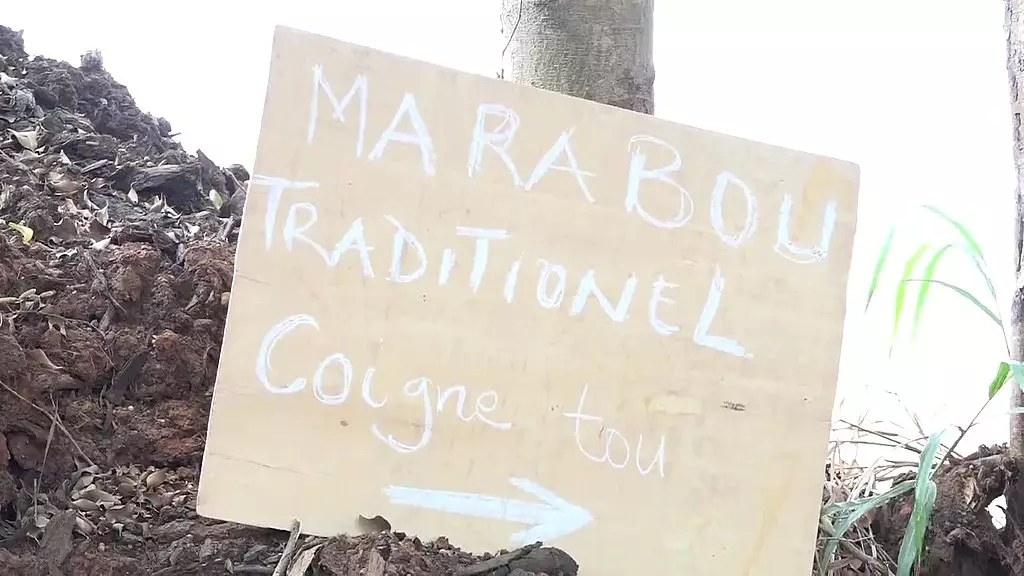 MARABOU
TRADITIONEL
Coigne tou